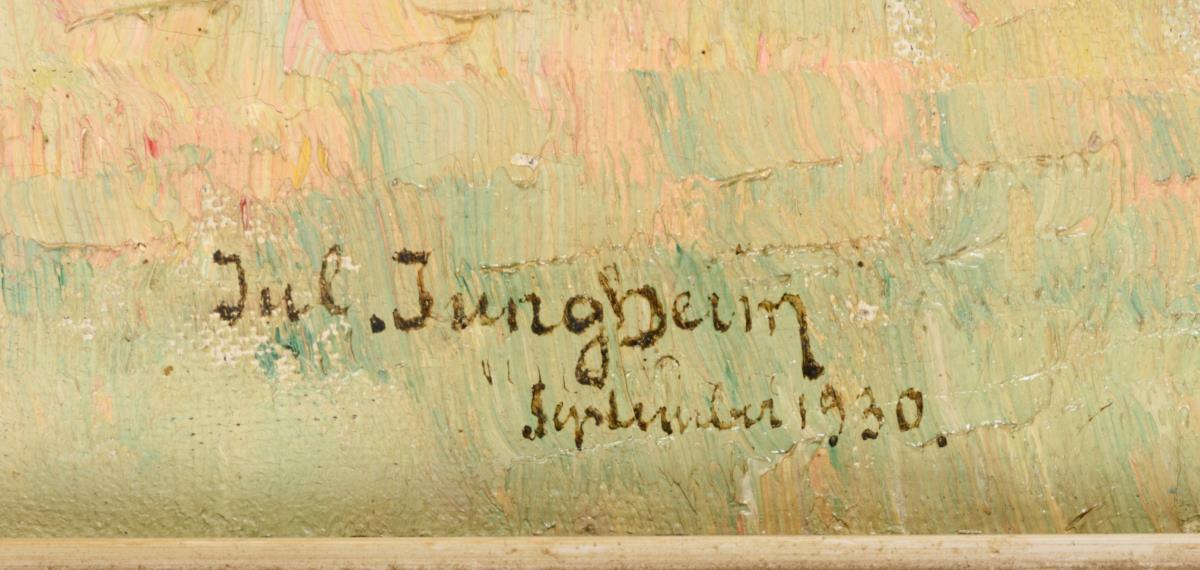 Jul. Jungheim
September 1930.